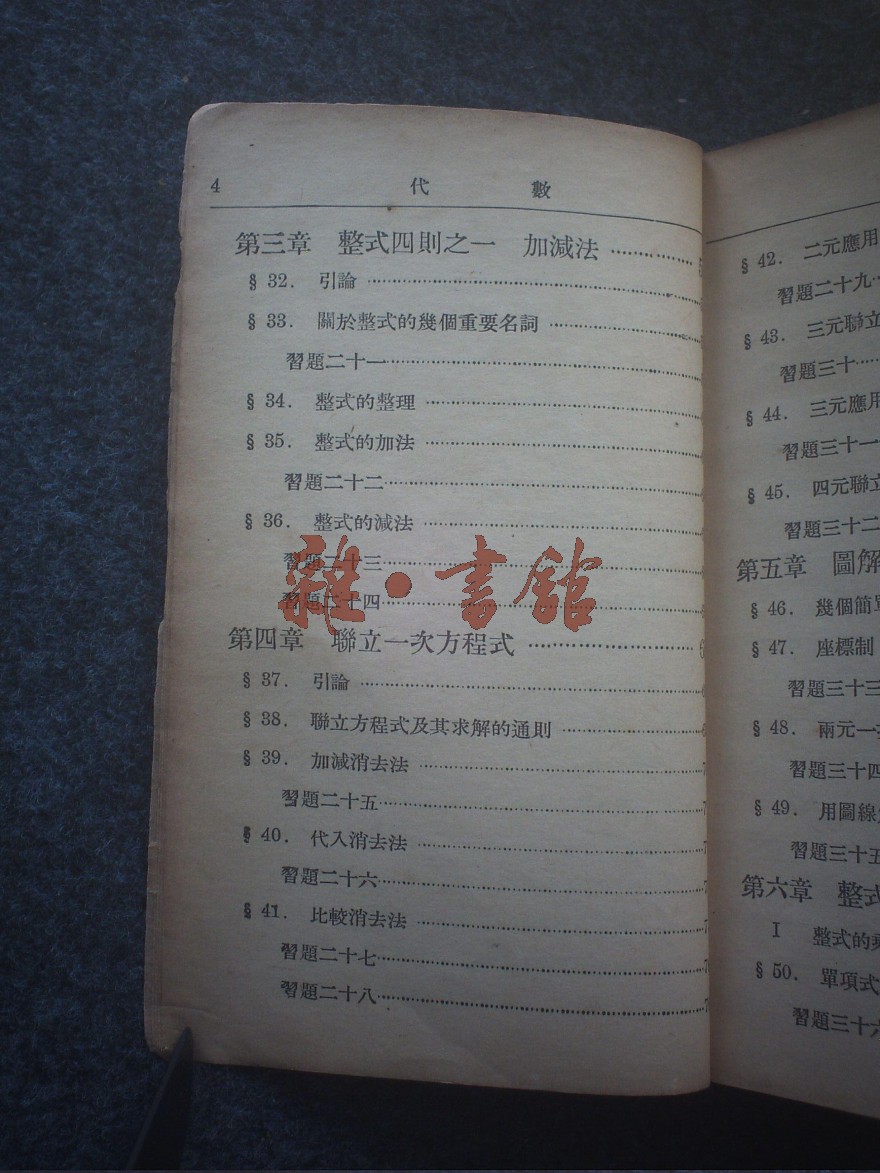 4 代數
第三章 整式四則之一 加減法
§ 32. 引論
§ 33. 關於整式的幾個重要名詞
習題二十一
§ 34. 整式的整理
§ 35. 整式的加法
習題二十二
§ 36. 整式的減法
習題二十三
習題二十四
第四章 聯立一次方程式
§ 37. 引論
§ 38. 聯立方程式及其求解的通則
§ 39. 加減消去法
習題二十五
§ 40. 代入消去法
習題二十六
§ 41. 比較消去法
習題二十七
習題二十八
雜·書館
§ 42. 二元應用
習題二十九
§ 43. 三元聯立
習題三十
§ 44. 三元應用
習題三十一
§ 45. 四元聯立
習題三十二
第五章 圖解
§ 46. 幾個簡單
§ 47. 座標制
習題三十三
§ 48. 兩元一
習題三十四
§ 49. 用圖線
習題三十五
第六章 整式
I 整式的乘
§ 50. 單項式
習題三十六